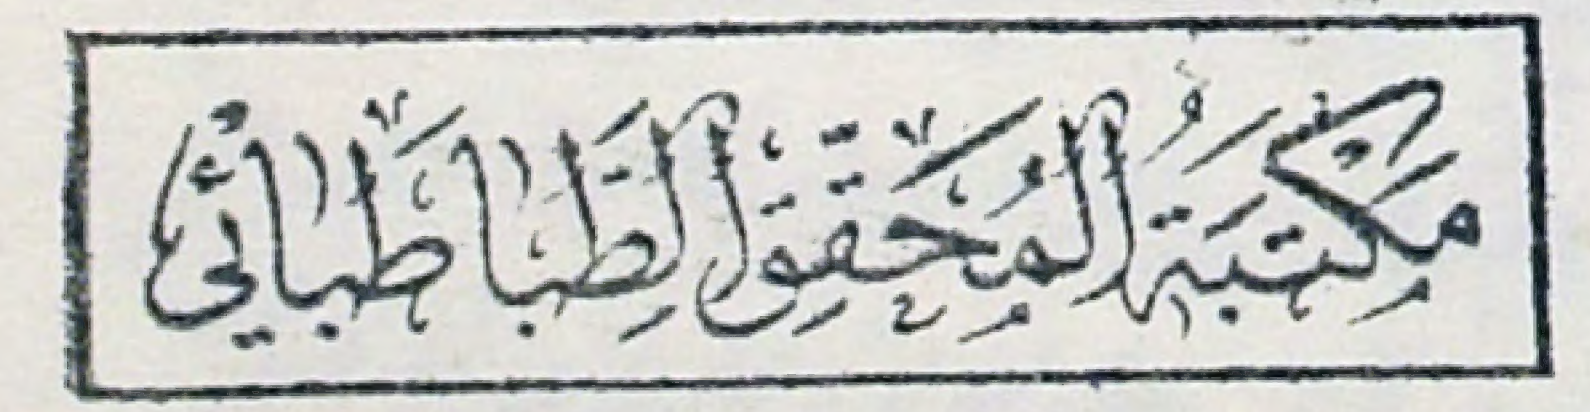 مَكْتَبَةُ المُحَقِّقِ الطَّبَاطَبَائِيِّ